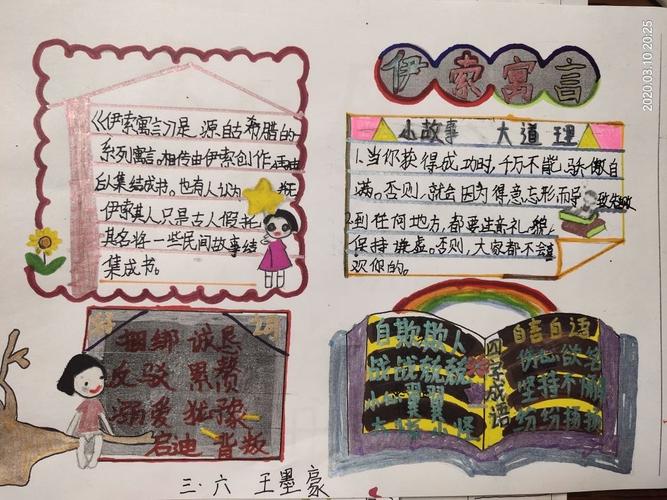 2020.03.10 20:25
伊索寓言
《伊索寓言》是源自古希腊的
系列寓言。相传由伊索创作,再由
后人集结成书。也有人认为
伊索其人只是古人假托
其名将一些民间故事结
集成书。
小故事 大道理
1.当你获得成功时,千万不能骄傲自
满。否则,就会因为得意忘形而导致失败
2.到任何地方,都要注意礼貌,
保持谦虚。否则,大家都不会喜
欢你的。
好词
捆绑 诚恳
反驳 累赘
溺爱 犹豫
启迪 背叛
四字成语
自欺欺人
战战兢兢
小心翼翼
大惊小怪
自言自语
坚持不
纷纷扬扬
三.六 王墨豪